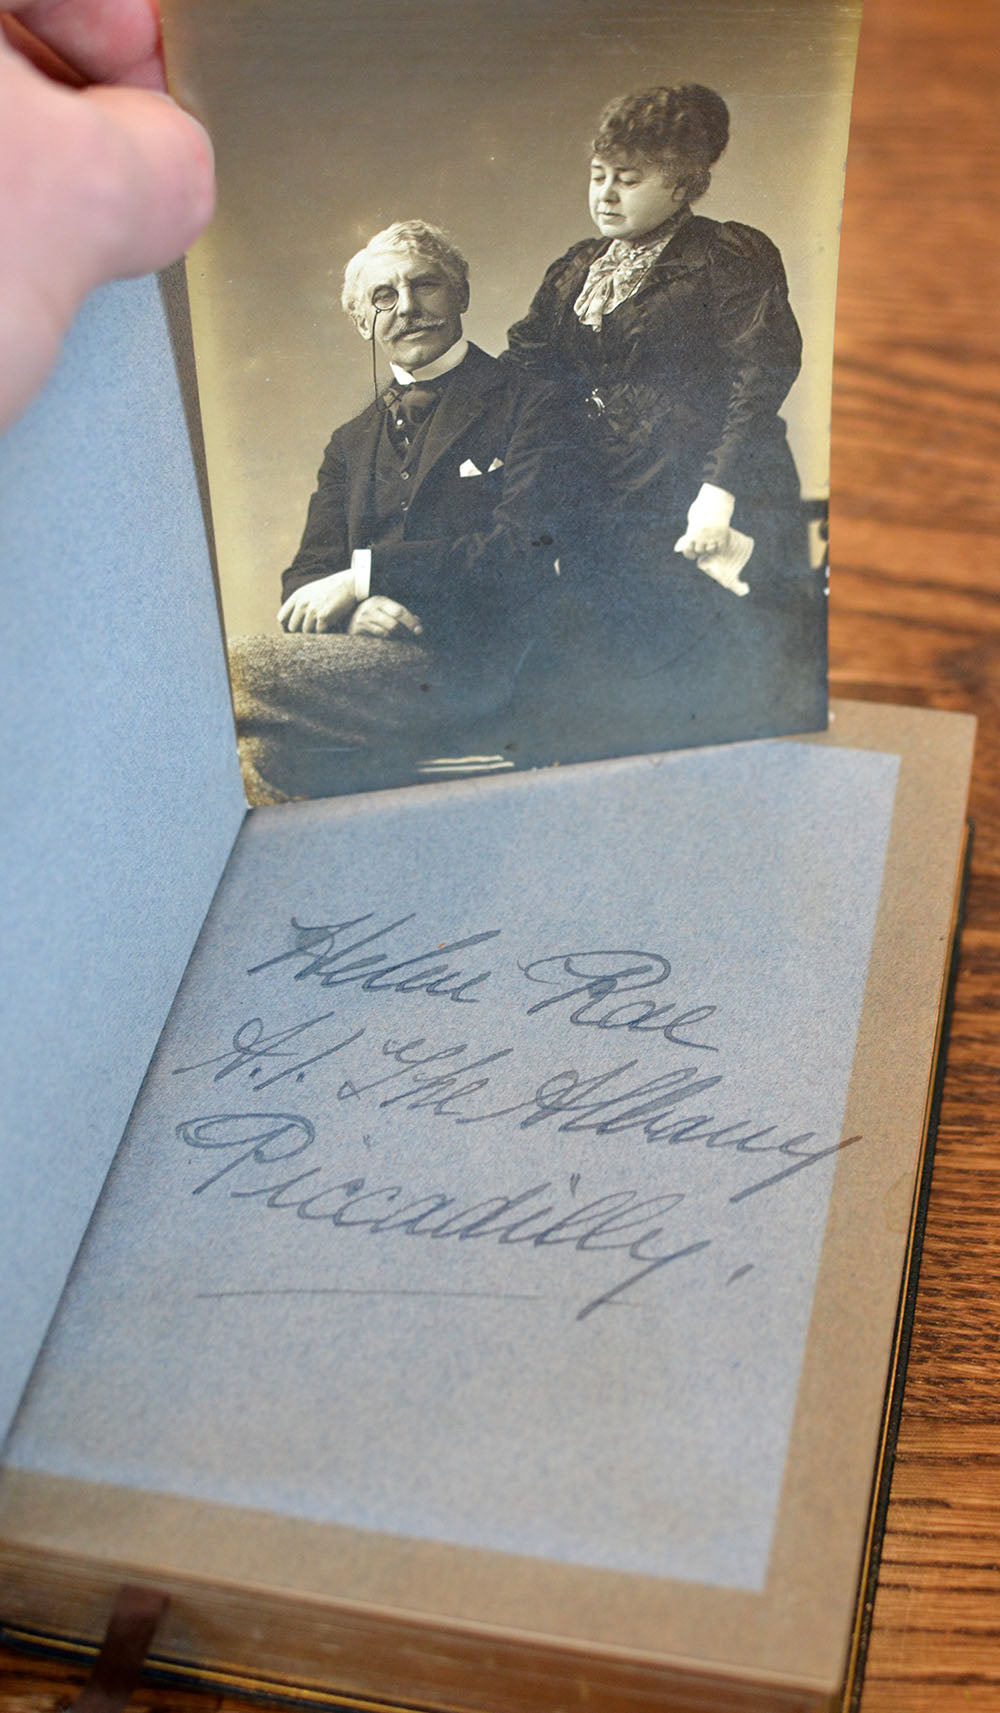 Helen Rae
A.1. The Albany
Piccadilly.